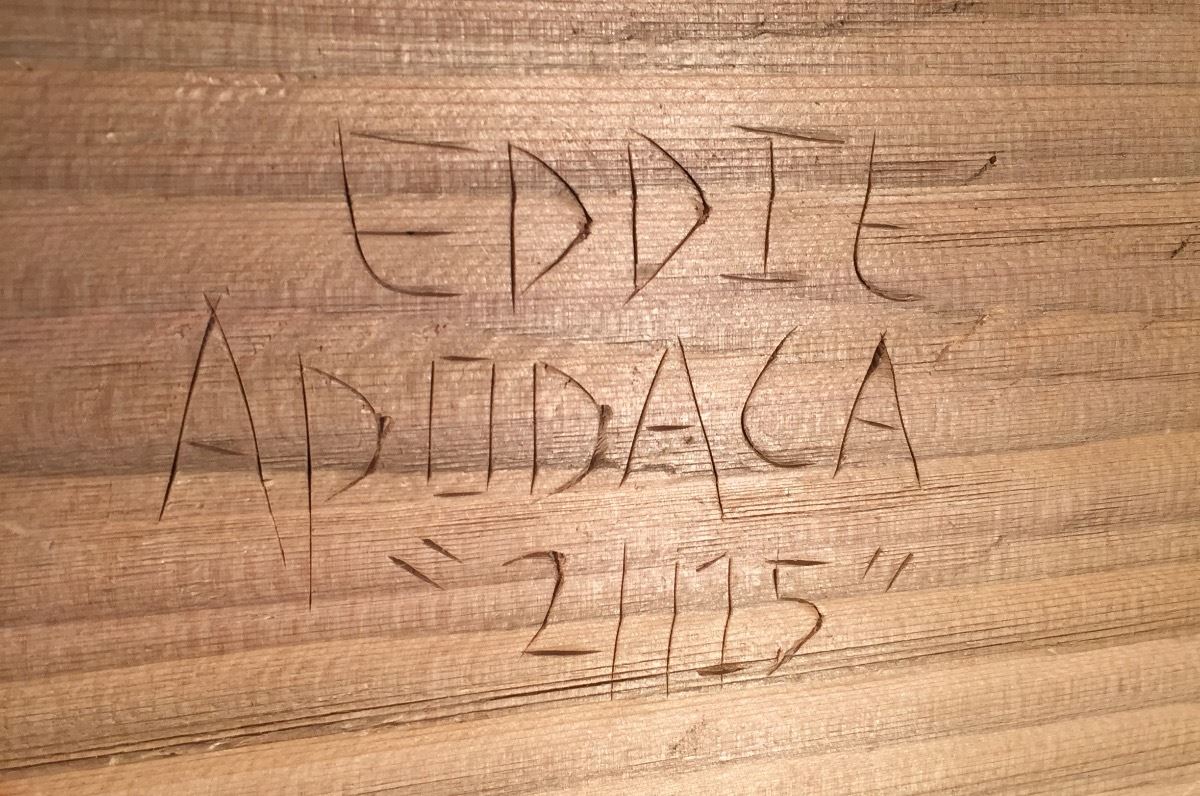 EDDIE
APODACA
"2015"